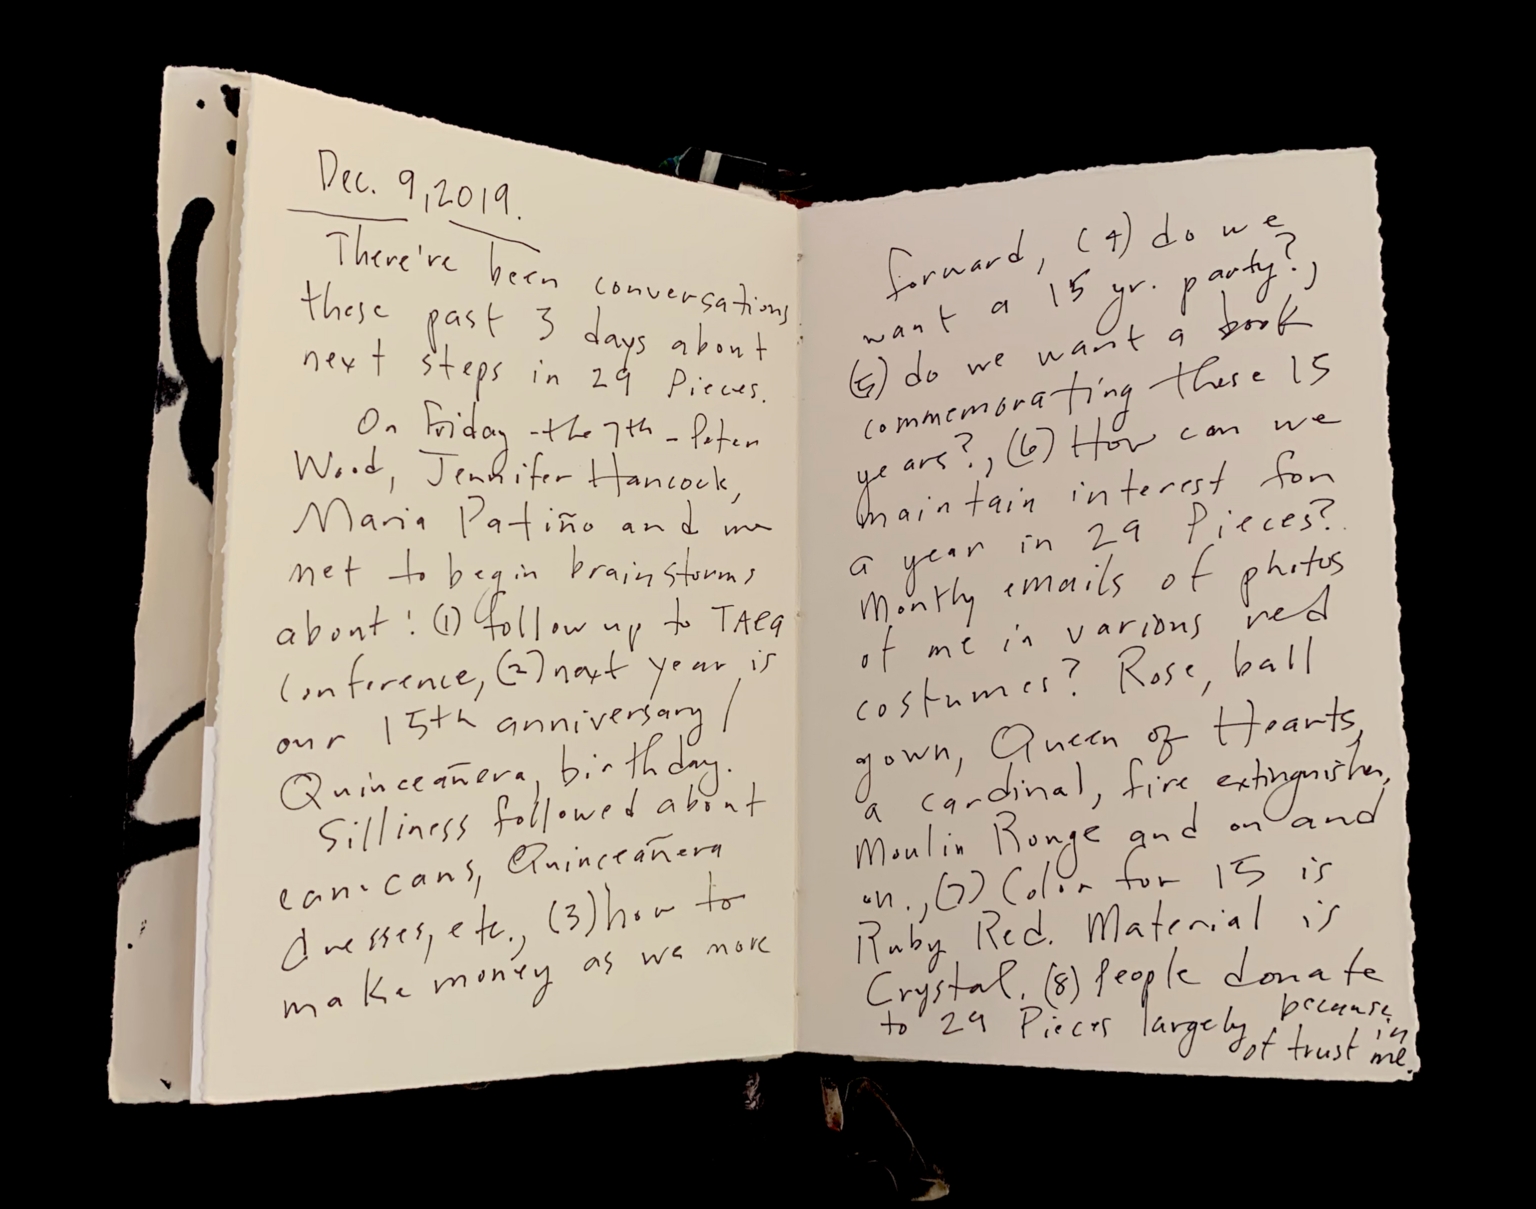 Dec. 9, 2019.
There're been conversations
these past 3 days about
next steps in 29 Pieces.
On Friday - the 7th - Peter
Wood, Jennifer Hancock,
Maria Patiño and me
met to begin brainstorms
about: (1) follow up to TAEA
conference, (2) next year is
our 15th anniversary/
Quinceañera, birthday.
Silliness followed about
can-cans, Quinceañera
dresses, etc., (3) how to
make money as we move
forward, (4) do we
want a 15 yr. party?,
(5) do we want a book
commemorating these 15
years?, (6) How can we
maintain interest for
a year in 29 Pieces?
Monthly emails of photos
of me in various red
costumes? Rose, ball
gown, Queen of Hearts,
a cardinal, fire extinguisher,
Moulin Rouge and on and
on., (7) Color for 15 is
Ruby Red. Material is
Crystal. (8) People donate
to 29 Pieces largely because
of trust in me.